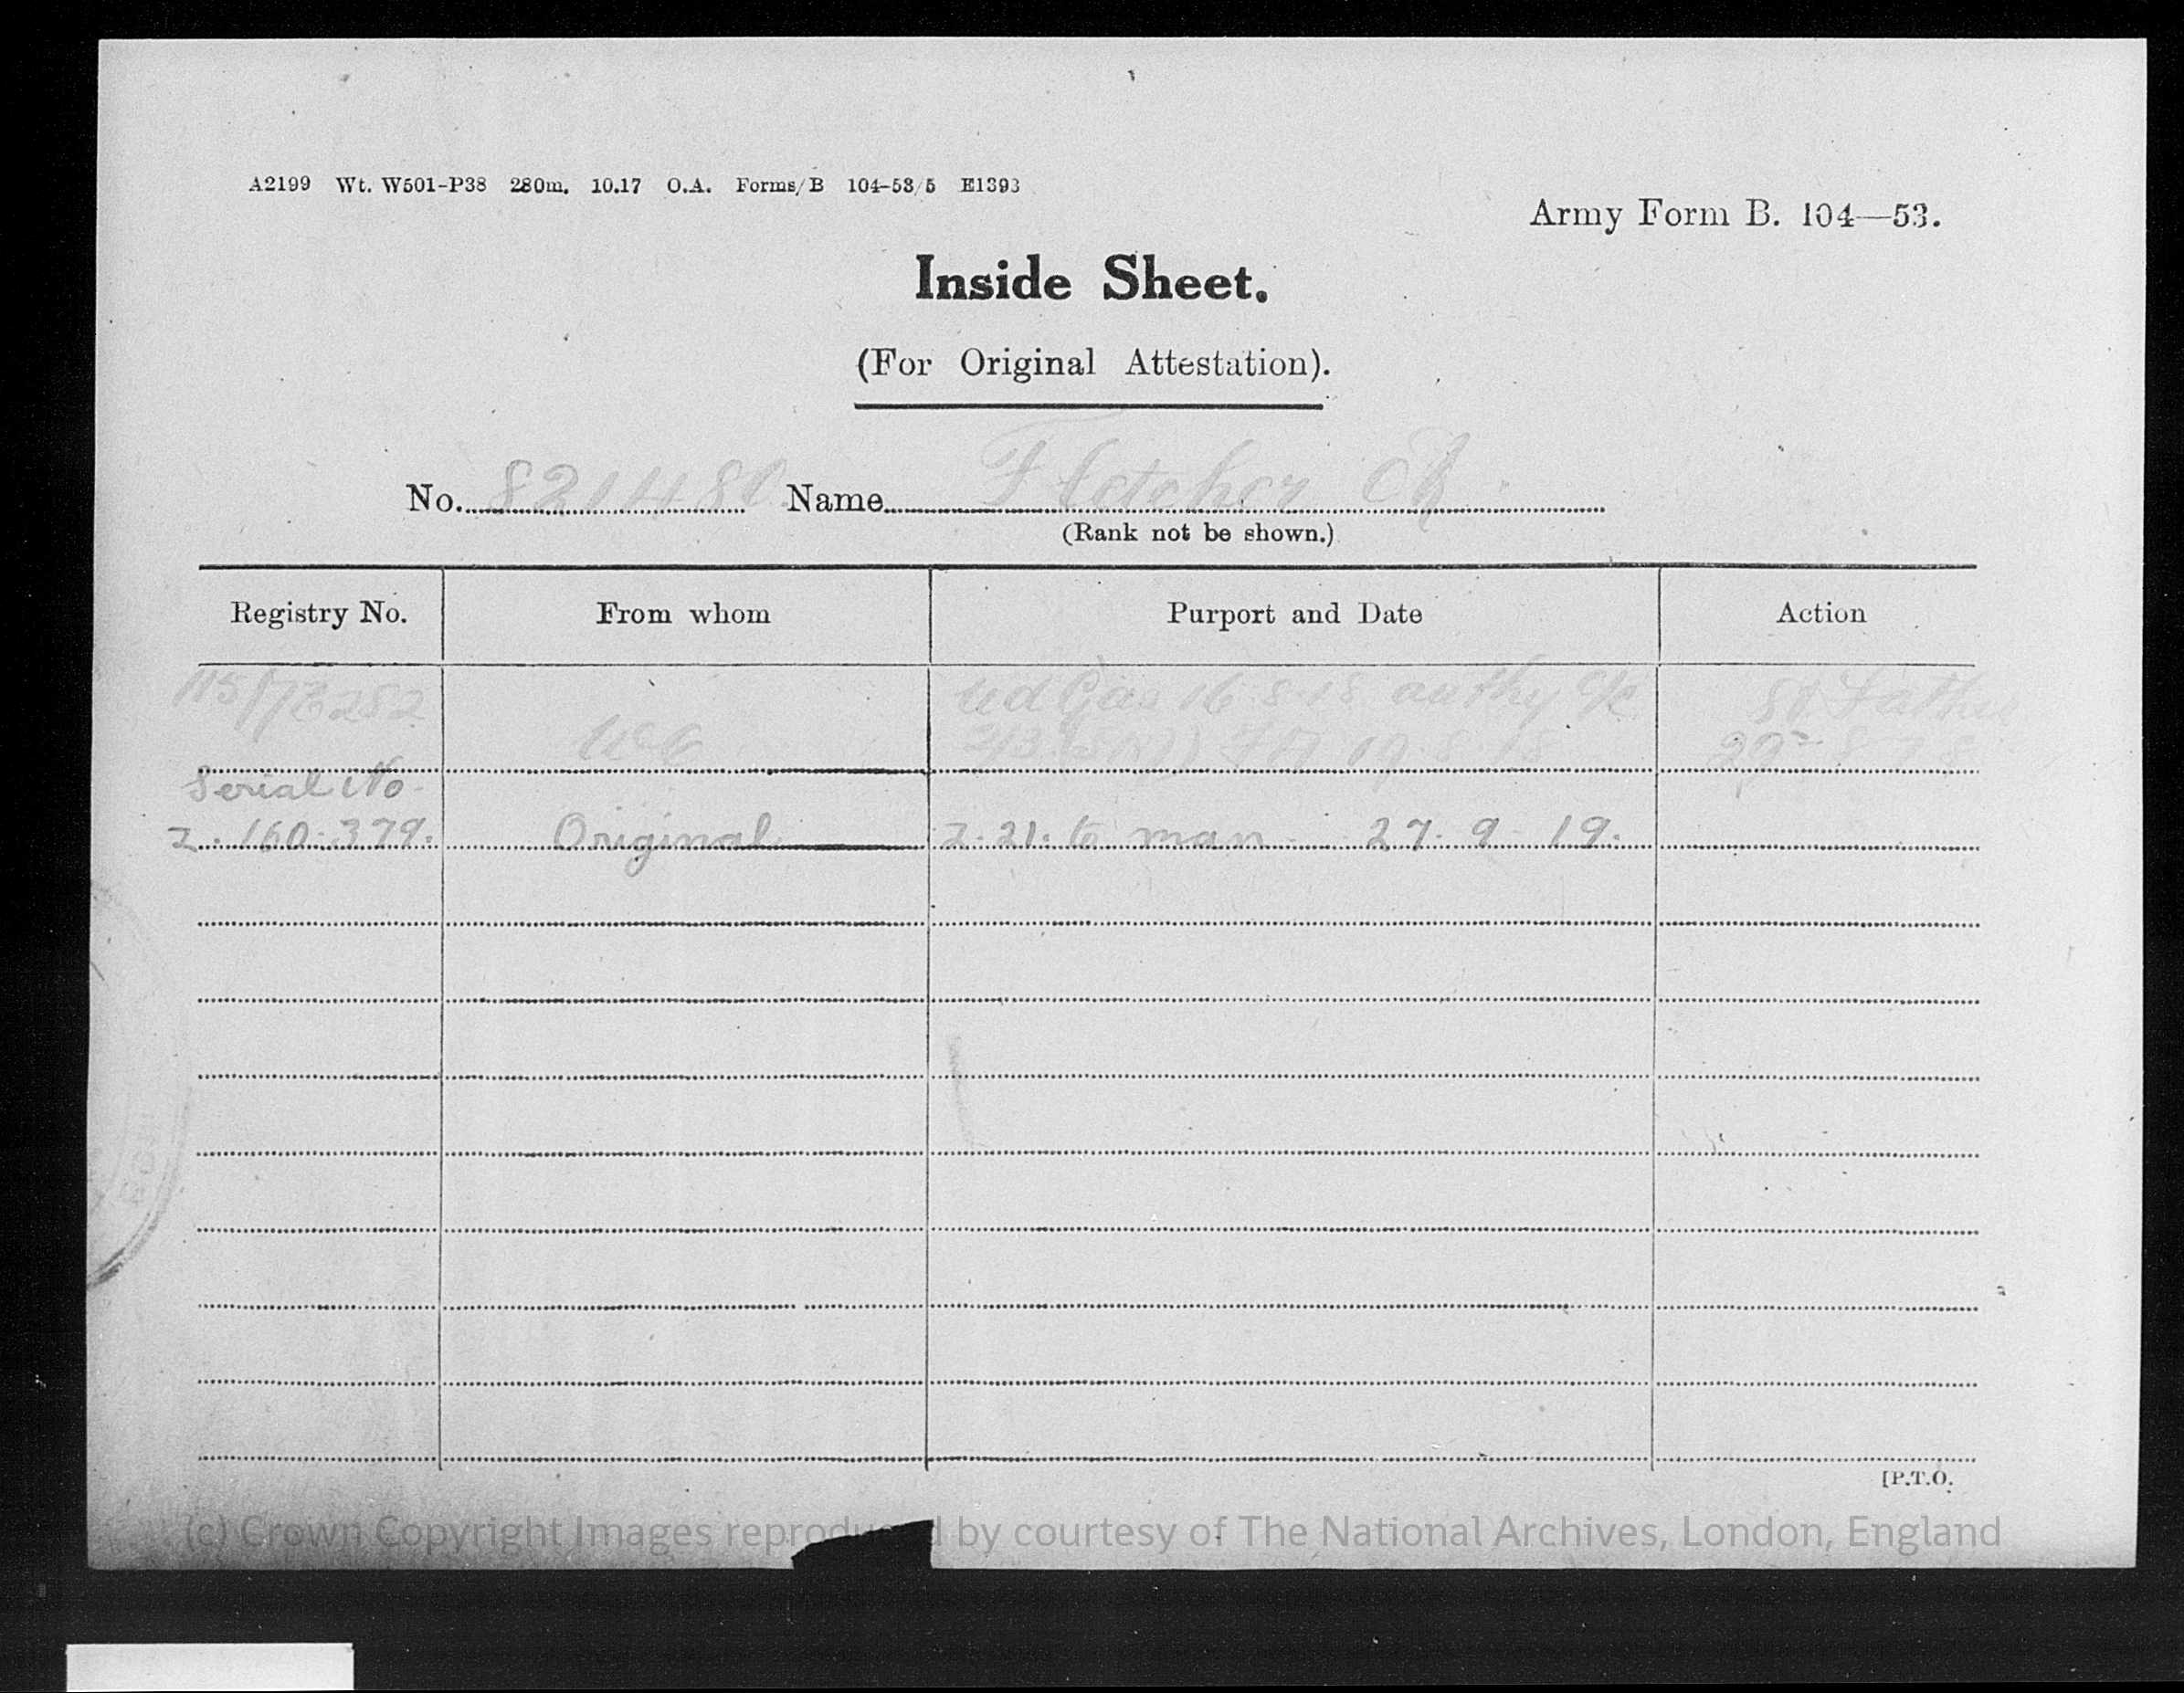 A2199 Wt. W501-P38 280m. 10.17 O.A. Forms/B 104-53/5 E1393
Army Form B. 104—53.
Inside Sheet.
(For Original Attestation).
No. 821480 Name Fletcher
(Rank not be shown.)
Registry No. From whom Purport and Date Action
Gas 16 8 18 Father
19 . 8 . 18
Serial No
Z. 160.379. Original Z.21. to man 27. 9 - 19.
[P.T.O.
(c) Crown Copyright Images reproduced by courtesy of The National Archives, London, England